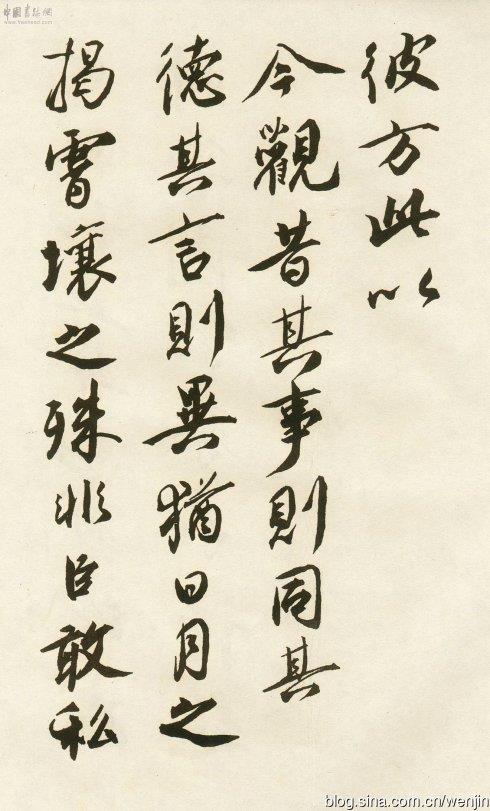 彼方此以
今觀昔其事則同其
德其言則異猶日月之
揭霄壤之殊非臣敢私
中國書法網
blog.sina.com.cn/wenjin